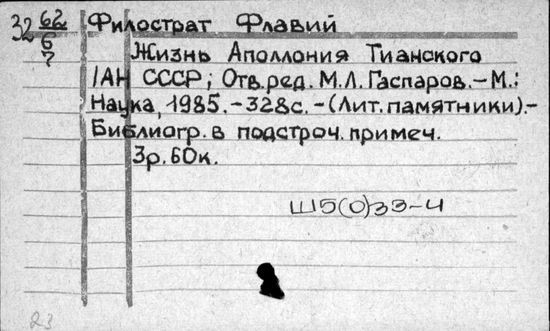 32 62 Филострат Флавий
6
7
Жизнь Аполлония Тианского
/АН СССР; Отв.ред. М.Л. Гаспаров.-М.:
Наука, 1985.-328с.-(Лит. памятники).-
Библиогр. в подстроч. примеч.
3р.60к.
Ш5(0)33-4
23